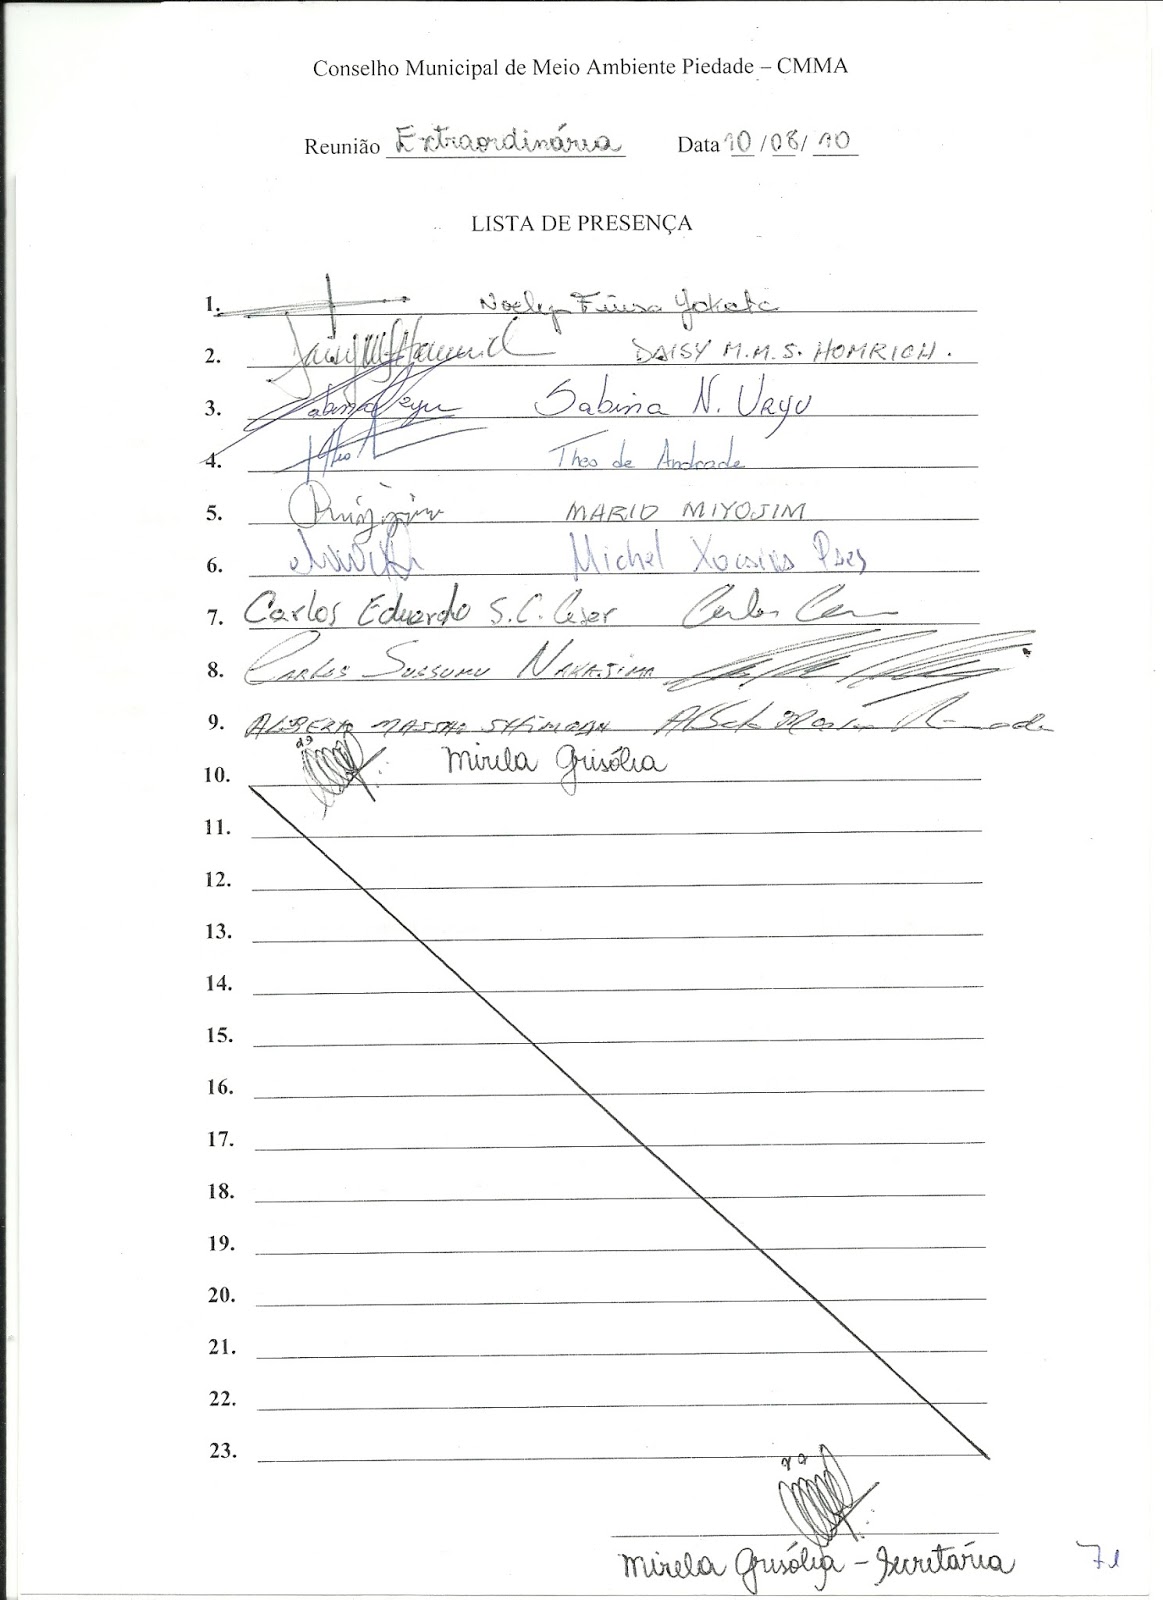 Conselho Municipal de Meio Ambiente Piedade – CMMA
Reunião Extraordinária Data 10/08/10
LISTA DE PRESENÇA
1. Noelya Fiusa Yokota
2. DAISY M.M.S. HOMRICH.
3. Sabina N. Uryu
4. Theo de Andrade
5. MARIO MIYOJIM
6. Michel Paes
7. Carlos Eduardo S.C. Cesar
8. CARLOS SUSSUMU NAKAJIMA
9. ALBERTO MASSAO
10. Mirela Grisólia
11.
12.
13.
14.
15.
16.
17.
18.
19.
20.
21.
22.
23.
Mirela Grisólia – Secretária
71